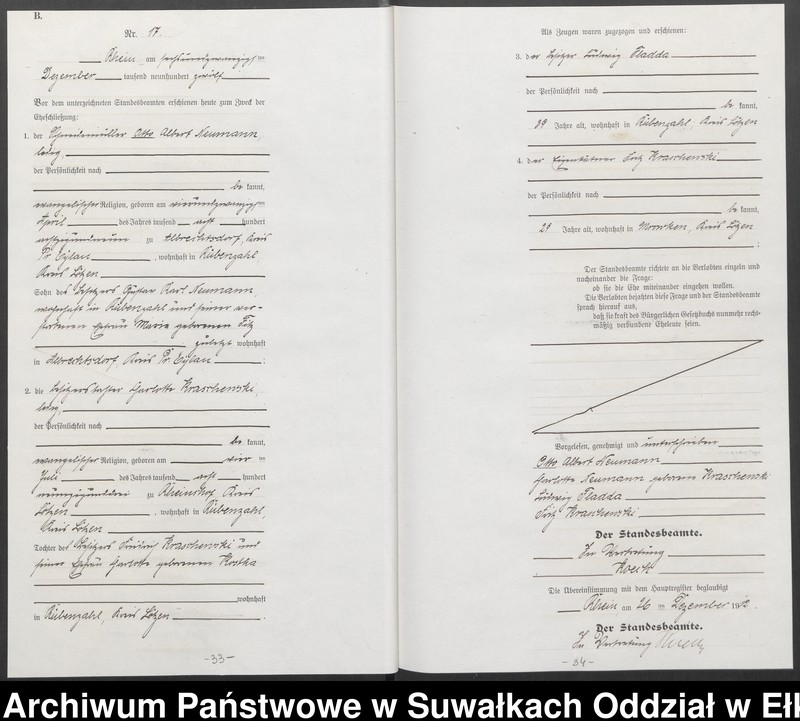 B.
Nr. 17.
Rhein, am sechsundzwanzigsten
Dezember tausend neunhundert zwölf
Vor dem unterzeichneten Standesbeamten erschienen heute zum Zweck der
Eheschließung:
1. der Schneidemüller Otto Albert Neumann,
ledig,
der Persönlichkeit nach
be kannt,
evangelischer Religion, geboren am vierundzwanzigsten
April des Jahres tausend acht hundert
neun zu Albrechtsdorf, Kreis
Pr. Eylau, wohnhaft in Rübenzahl,
Kreis Lötzen
Sohn des Besitzers Gustav Karl Neumann,
wohnhaft in Rübenzahl und seiner ver-
storbenen Ehefrau Marie geborenen
zuletzt wohnhaft
in Albrechtsdorf, Kreis Pr. Eylau;
2. die Besitzerstochter Charlotte Kraschewski,
ledig,
der Persönlichkeit nach
be kannt,
evangelischer Religion, geboren am vier ten
Juli des Jahres tausend acht hundert
neunzigunddrei zu Rheinshof, Kreis
Lötzen, wohnhaft in Rübenzahl,
Kreis Lötzen
Tochter des Besitzers Kraschewski und
seiner Ehefrau Charlotte geborenen Kostka
wohnhaft
in Rübenzahl, Kreis Lötzen.
-33-
Als Zeugen waren zugezogen und erschienen:
3. der Besitzer Ludwig Sladda
der Persönlichkeit nach
be kannt,
39 Jahre alt, wohnhaft in Rübenzahl, Kreis Lötzen
4. der Eigenkätner Fritz Kraschewski
der Persönlichkeit nach
be kannt,
29 Jahre alt, wohnhaft in Mrowken, Kreis Lötzen
;
Der Standesbeamte richtete an die Verlobten einzeln und
nacheinander die Frage:
ob sie die Ehe miteinander eingehen wollen.
Die Verlobten bejahten diese Frage und der Standesbeamte
sprach hierauf aus,
daß sie kraft des Bürgerlichen Gesetzbuchs nunmehr recht-
mäßig verbundene Eheleute seien.
Vorgelesen, genehmigt und unterschrieben
Otto Albert Neumann
Charlotte Neumann geborene Kraschewski
Ludwig Sladda
Fritz Kraschewski
Der Standesbeamte.
In Vertretung
Die Übereinstimmung mit dem Hauptregister beglaubigt
Rhein, am 26 ten Dezember 1912.
Der Standesbeamte.
In Vertretung
-34-
Archiwum Państwowe w Suwałkach Oddział w Eł